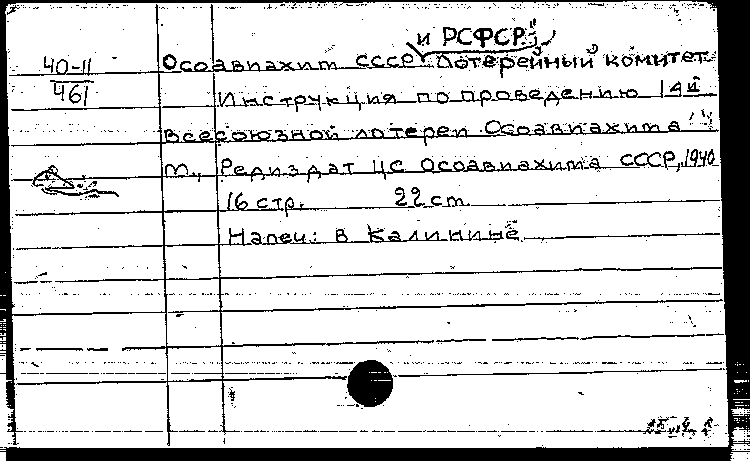 и РСФСР
40-11
461
Осоавиахим СССР Лотерейный комитет.
Инструкция по проведению 14й
всесоюзной лотереи Осоавиахима
М., Редиздат ЦС Осоавиахима СССР, 1940
16 стр. 22 см.
Напеч: в Калинине